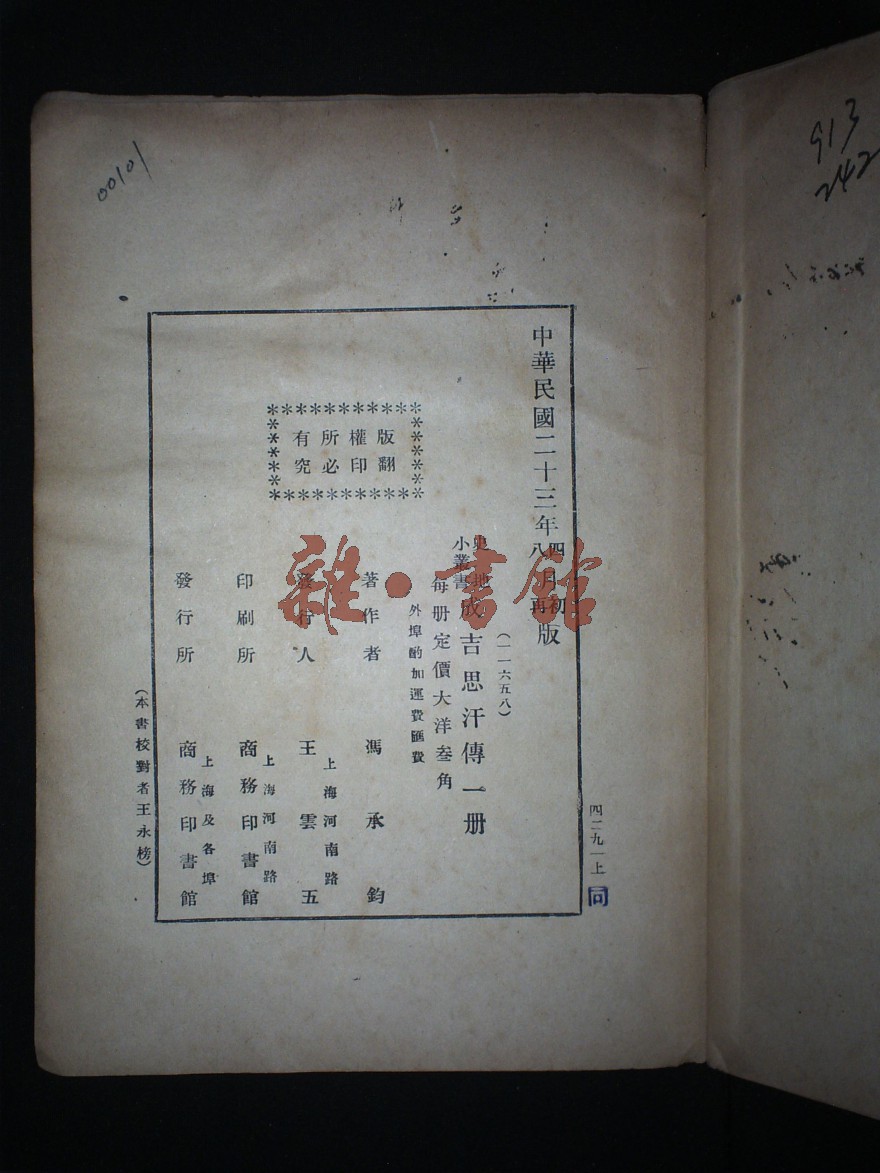 中華民國二十三年四月初版
八月再版
(一一六五八)
史地小叢書
成吉思汗傳一册
每册定價大洋叁角
外埠酌加運費匯費
版權所有
翻印必究
著作者 馮承鈞
發行人 王雲五
上海河南路
印刷所 商務印書館
上海河南路
發行所 商務印書館
上海及各埠
(本書校對者王永榜)
四二九一上
同
00101
913
242
雜·書館